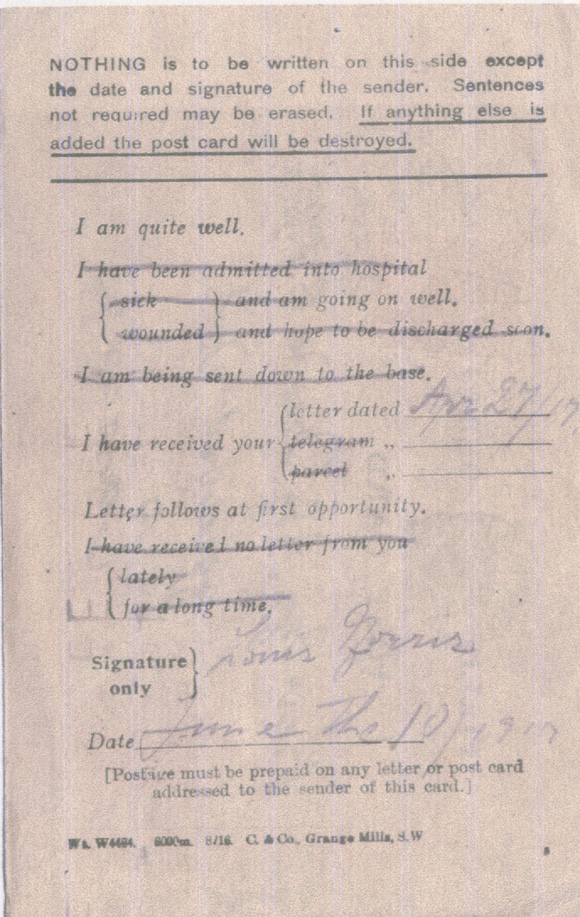 NOTHING is to be written on this side except
the date and signature of the sender. Sentences
not required may be erased. If anything else is
added the post card will be destroyed.
I am quite well.
I have been admitted into hospital
sick and am going on well.
wounded and hope to be discharged soon.
I am being sent down to the base.
letter dated Apr 27/17
I have received your telegram ,,
parcel ,,
Letter follows at first opportunity.
I have received no letter from you
lately
for a long time.
Signature only Louis
Date June The 10/1917
[Postage must be prepaid on any letter or post card
addressed to the sender of this card.]
Wt. W4494. 6000m. 8/16. C. & Co., Grange Mills, S.W